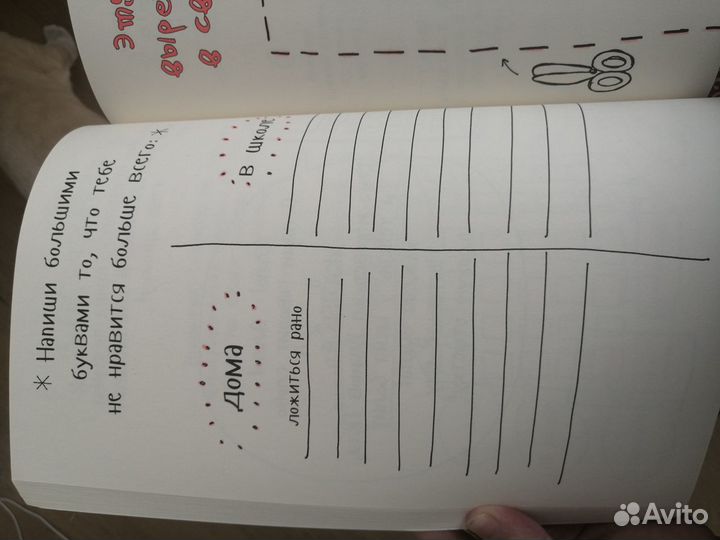 эти
выре
в св
* Напиши большими
буквами то, что тебе
не нравится больше всего: *
Дома
В школе
ложиться рано
Avito